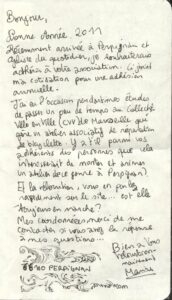 Bonjour,
Bonne Année 2011
Récemment arrivée à Perpignan et
du quotidien, je souhaiterais
adhérer à votre association. Ci joint
ma cotisation pour une adhésion
annuelle.
J'ai eu l'occasion pendant mes études
de passer un peu de temps au Collectif
Vélo en Ville de Marseille qui
gère un atelier associatif de réparation
de bicyclette. Y a t'il parmi vos
adhérents des personnes que cela
intéresserait de monter et animer
un atelier de ce genre à Perpignan?
Et la vélorution, vous en parlez
rapidement sur le site... est elle
toujours en marche?
Mes coordonnées, merci de me
contacter si vous avez la réponse
à mes questions...
Bien à vous
Marina
66 PERPIGNAN